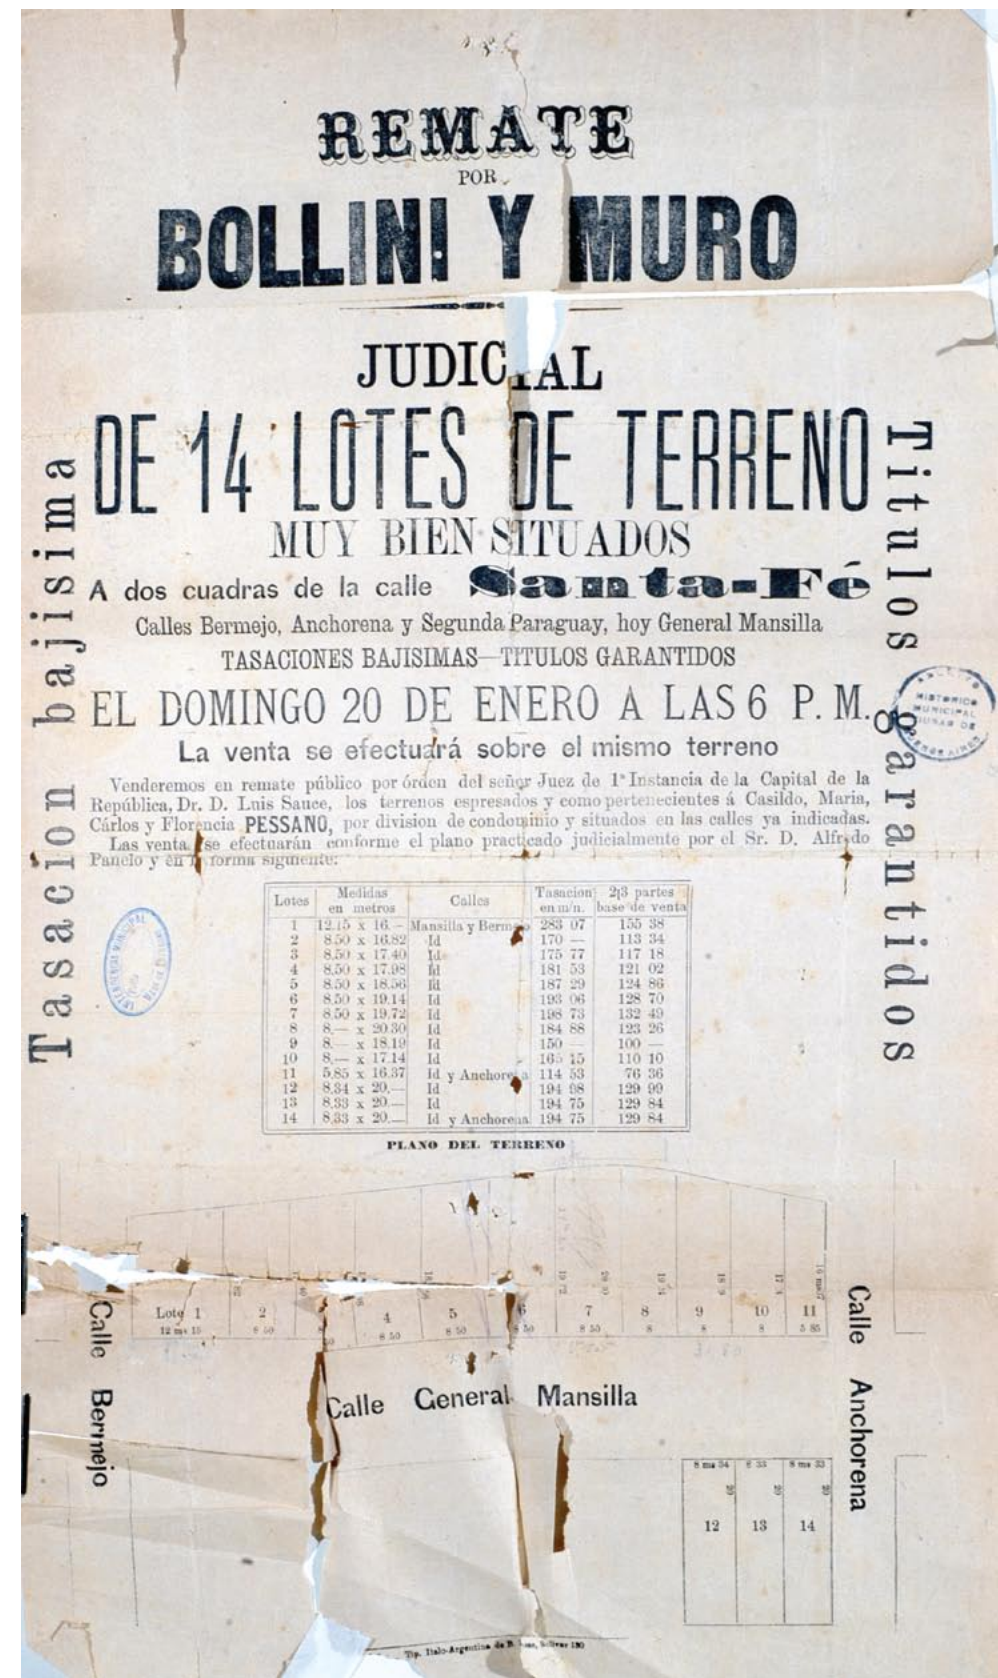 REMATE
POR
BOLLINI Y MURO
JUDICIAL
DE 14 LOTES DE TERRENO
MUY BIEN SITUADOS
A dos cuadras de la calle Santa-Fé
Calles Bermejo, Anchorena y Segunda Paraguay, hoy General Mansilla
TASACIONES BAJISIMAS—TITULOS GARANTIDOS
EL DOMINGO 20 DE ENERO A LAS 6 P. M.
La venta se efectuará sobre el mismo terreno
Venderemos en remate público por órden del señor Juez de 1ª Instancia de la Capital de la
República, Dr. D. Luis Sauce, los terrenos espresados y como pertenecientes á Casildo, Maria,
Cárlos y Florencia PESSANO, por division de condominio y situados en las calles ya indicadas.
Las venta se efectuarán conforme el plano practicado judicialmente por el Sr. D. Alfredo
Panelo y en forma siguiente:
Tasacion bajisima
Titulos garantidos
Lotes Medidas en metros Calles Tasacion en m/n. 2|3 partes base de venta
1 12.15 x 16.— Mansilla y Bermejo 283 07 155 38
2 8.50 x 16.82 Id 170 — 113 34
3 8.50 x 17.40 Id 175 77 117 18
4 8.50 x 17.98 Id 181 53 121 02
5 8.50 x 18.56 Id 187 29 124 86
6 8.50 x 19.14 Id 193 06 128 70
7 8.50 x 19.72 Id 198 73 132 49
8 8.— x 20.30 Id 184 88 123 26
9 8.— x 18.19 Id 150 — 100 —
10 8.— x 17.14 Id 165 15 110 10
11 5.85 x 16.37 Id y Anchorena 114 53 76 36
12 8.34 x 20.— Id 194 98 129 99
13 8.33 x 20.— Id 194 75 129 84
14 8.33 x 20.— Id y Anchorena 194 75 129 84
PLANO DEL TERRENO
Lote 1 2 4 5 6 7 8 9 10 11
12 ms 15 8 50 8 50 8 50 8 50 8 50 8 8 8 5 85
Calle Bermejo
Calle General Mansilla
Calle Anchorena
8 ms 34 8 33 8 ms 33
20 20 20
12 13 14
Tip. Italo-Argentina de B. Bolivar 150
HISTORICO
MUNICIPAL
BUENOS AIRES